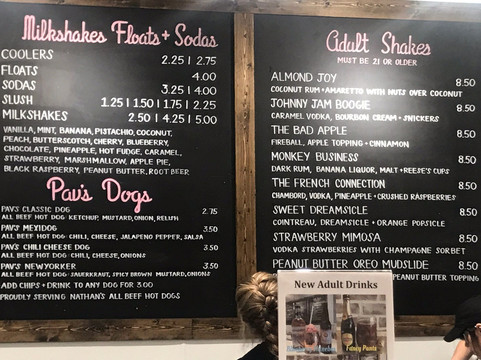 Milkshakes Floats + Sodas
COOLERS 2.25 | 2.75
FLOATS 4.00
SODAS 3.25 | 4.00
SLUSH 1.25 | 1.50 | 1.75 | 2.25
MILKSHAKES 2.50 | 4.25 | 5.00
VANILLA, MINT, BANANA, PISTACHIO, COCONUT,
PEACH, BUTTERSCOTCH, CHERRY, BLUEBERRY,
CHOCOLATE, PINEAPPLE, HOT FUDGE, CARAMEL,
STRAWBERRY, MARSHMALLOW, APPLE PIE,
BLACK RASPBERRY, PEANUT BUTTER, ROOT BEER
Pav's Dogs
PAV'S CLASSIC DOG 2.75
ALL BEEF HOT DOG KETCHUP, MUSTARD, ONION, RELISH
PAV'S MEXIDOG 3.50
ALL BEEF HOT DOG · CHILI, CHEESE, JALAPENO PEPPER, SALSA
PAV'S CHILI CHEESE DOG 3.50
ALL BEEF HOT DOG · CHILI, CHEESE, ONIONS
PAV'S NEWYORKER 3.50
ALL BEEF HOT DOG · SAUERKRAUT, SPICY BROWN MUSTARD, ONIONS
ADD CHIPS + DRINK TO ANY DOG FOR 3.00
PROUDLY SERVING NATHAN'S ALL BEEF HOT DOGS
Adult Shakes
MUST BE 21 OR OLDER
ALMOND JOY 8.50
COCONUT RUM + AMARETTO WITH NUTS OVER COCONUT
JOHNNY JAM BOOGIE 8.50
CARAMEL VODKA, BOURBON CREAM + SNICKERS
THE BAD APPLE 8.50
FIREBALL, APPLE TOPPING + CINNAMON
MONKEY BUSINESS 8.50
DARK RUM, BANANA LIQUOR, MALT + REESE'S CUPS
THE FRENCH CONNECTION 8.50
CHAMBORD, VODKA, PINEAPPLE + CRUSHED RASPBERRIES
SWEET DREAMSICLE 8.50
COINTREAU, DREAMSICLE + ORANGE POPSICLE
STRAWBERRY MIMOSA 8.50
VODKA STRAWBERRIES WITH CHAMPAGNE SORBET
PEANUT BUTTER OREO MUDSLIDE 8.50
PEANUT BUTTER TOPPING
New Adult Drinks
Fancy Pants